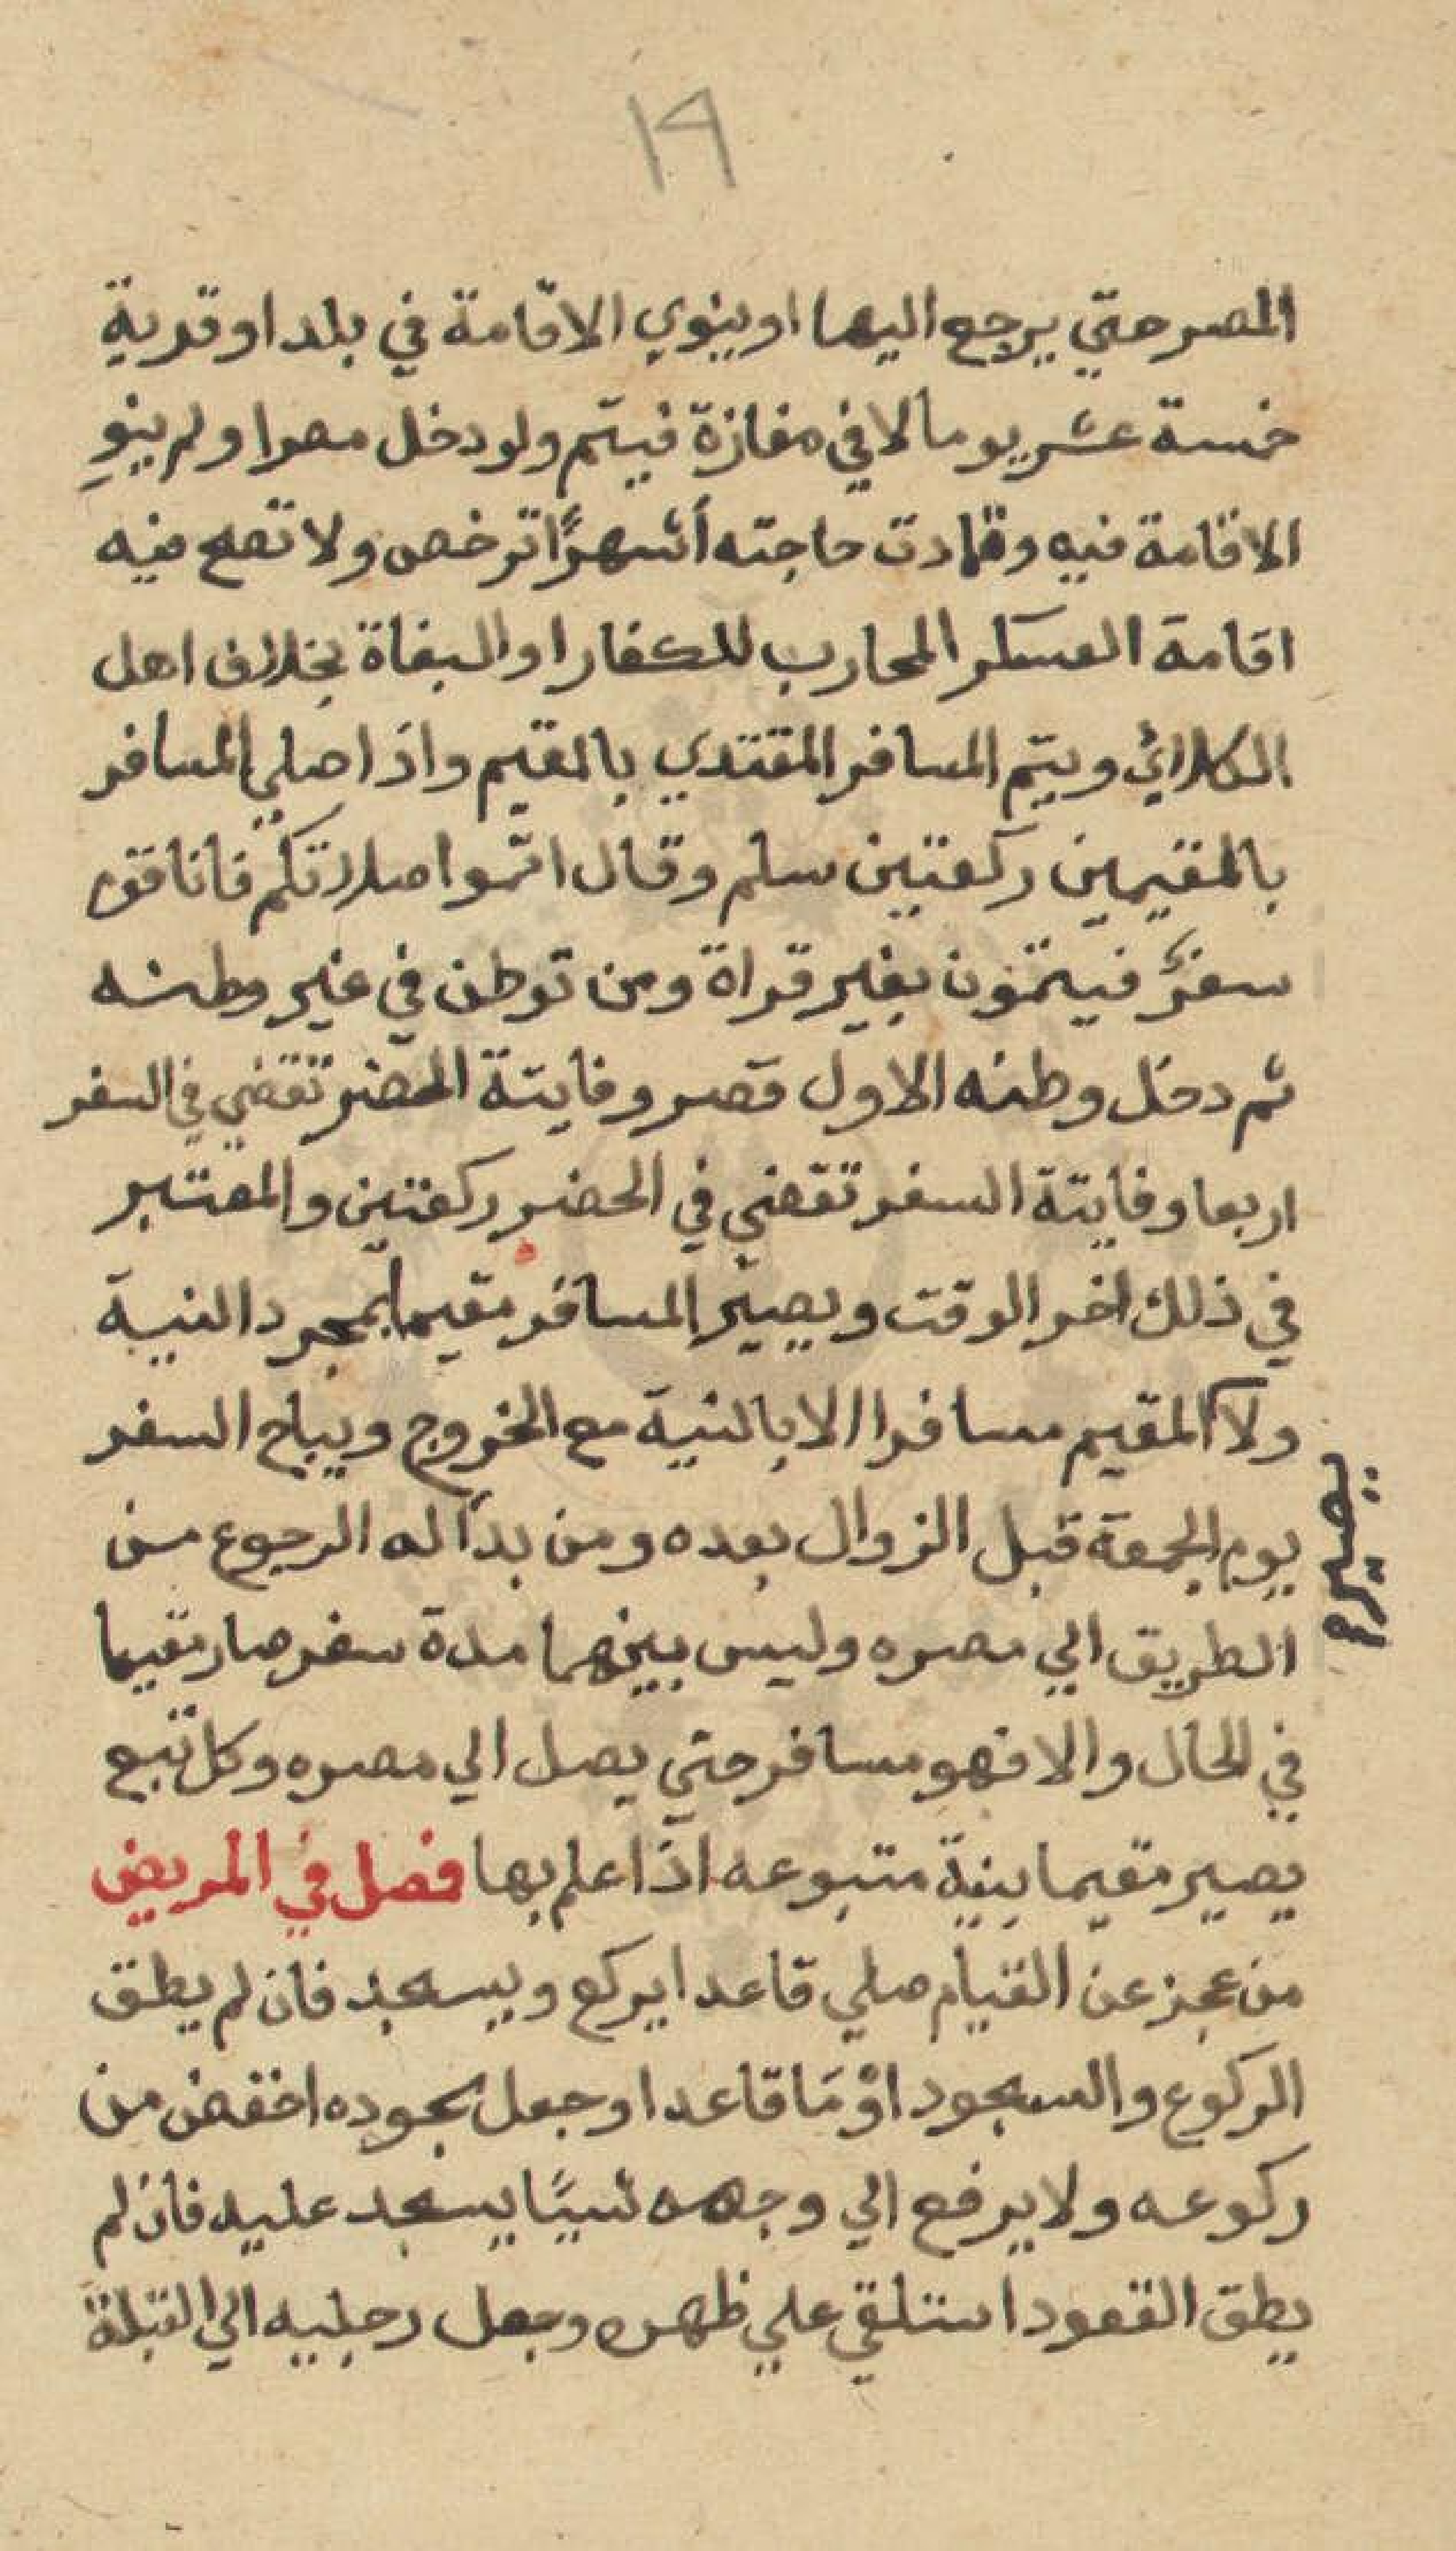 ١٩
المصر حتي يرجع اليها او ينوي الاقامة في بلد او قرية
خمسة عشر يوما لا في مفازة فيتم ولو دخل مصرا ولم ينوِ
الاقامة فيه وتمادت حاجته أشهرًا ترخص ولا تصح فيه
اقامة العسكر المحارب للكفار او البغاة بخلاف اهل
الكلائ ويتم المسافر المقتدي بالمقيم واذا صلي المسافر
بالمقيمين ركعتين سلم وقال اتموا صلاتكم فانا قوم
سفرٌ فيتمون بغير قراة ومن توطن في غير وطنه
ثم دخل وطنه الاول قصر وفايتة الحضر تقضي في السفر
اربعا وفايتة السفر تقضي في الحضر ركعتين والمعتبر
في ذلك اخر الوقت ويصير المسافر مقيما بمجرد النية
ولا المقيم مسافرا الا بالنية مع الخروج ويباح السفر
يصير
يوم الجمعة قبل الزوال بعده ومن بدأ له الرجوع من
الطريق الي مصره وليس بينهما مدة سفر صار مقيما
في الحال والا فهو مسافر حتي يصل الي مصره وكل تبع
يصير مقيما بنية متبوعه اذا علم بها فصل في المريض
من عجز عن القيام صلي قاعدا يركع ويسجد فان لم يطق
الركوع والسجود اوْمَا قاعدا وجعل سجوده اخفض من
ركوعه ولا يرفع الي وجهه شيئًا يسجد عليه فان لم
يطق القعود استلقي علي ظهره وجعل رجليه الي القبلة